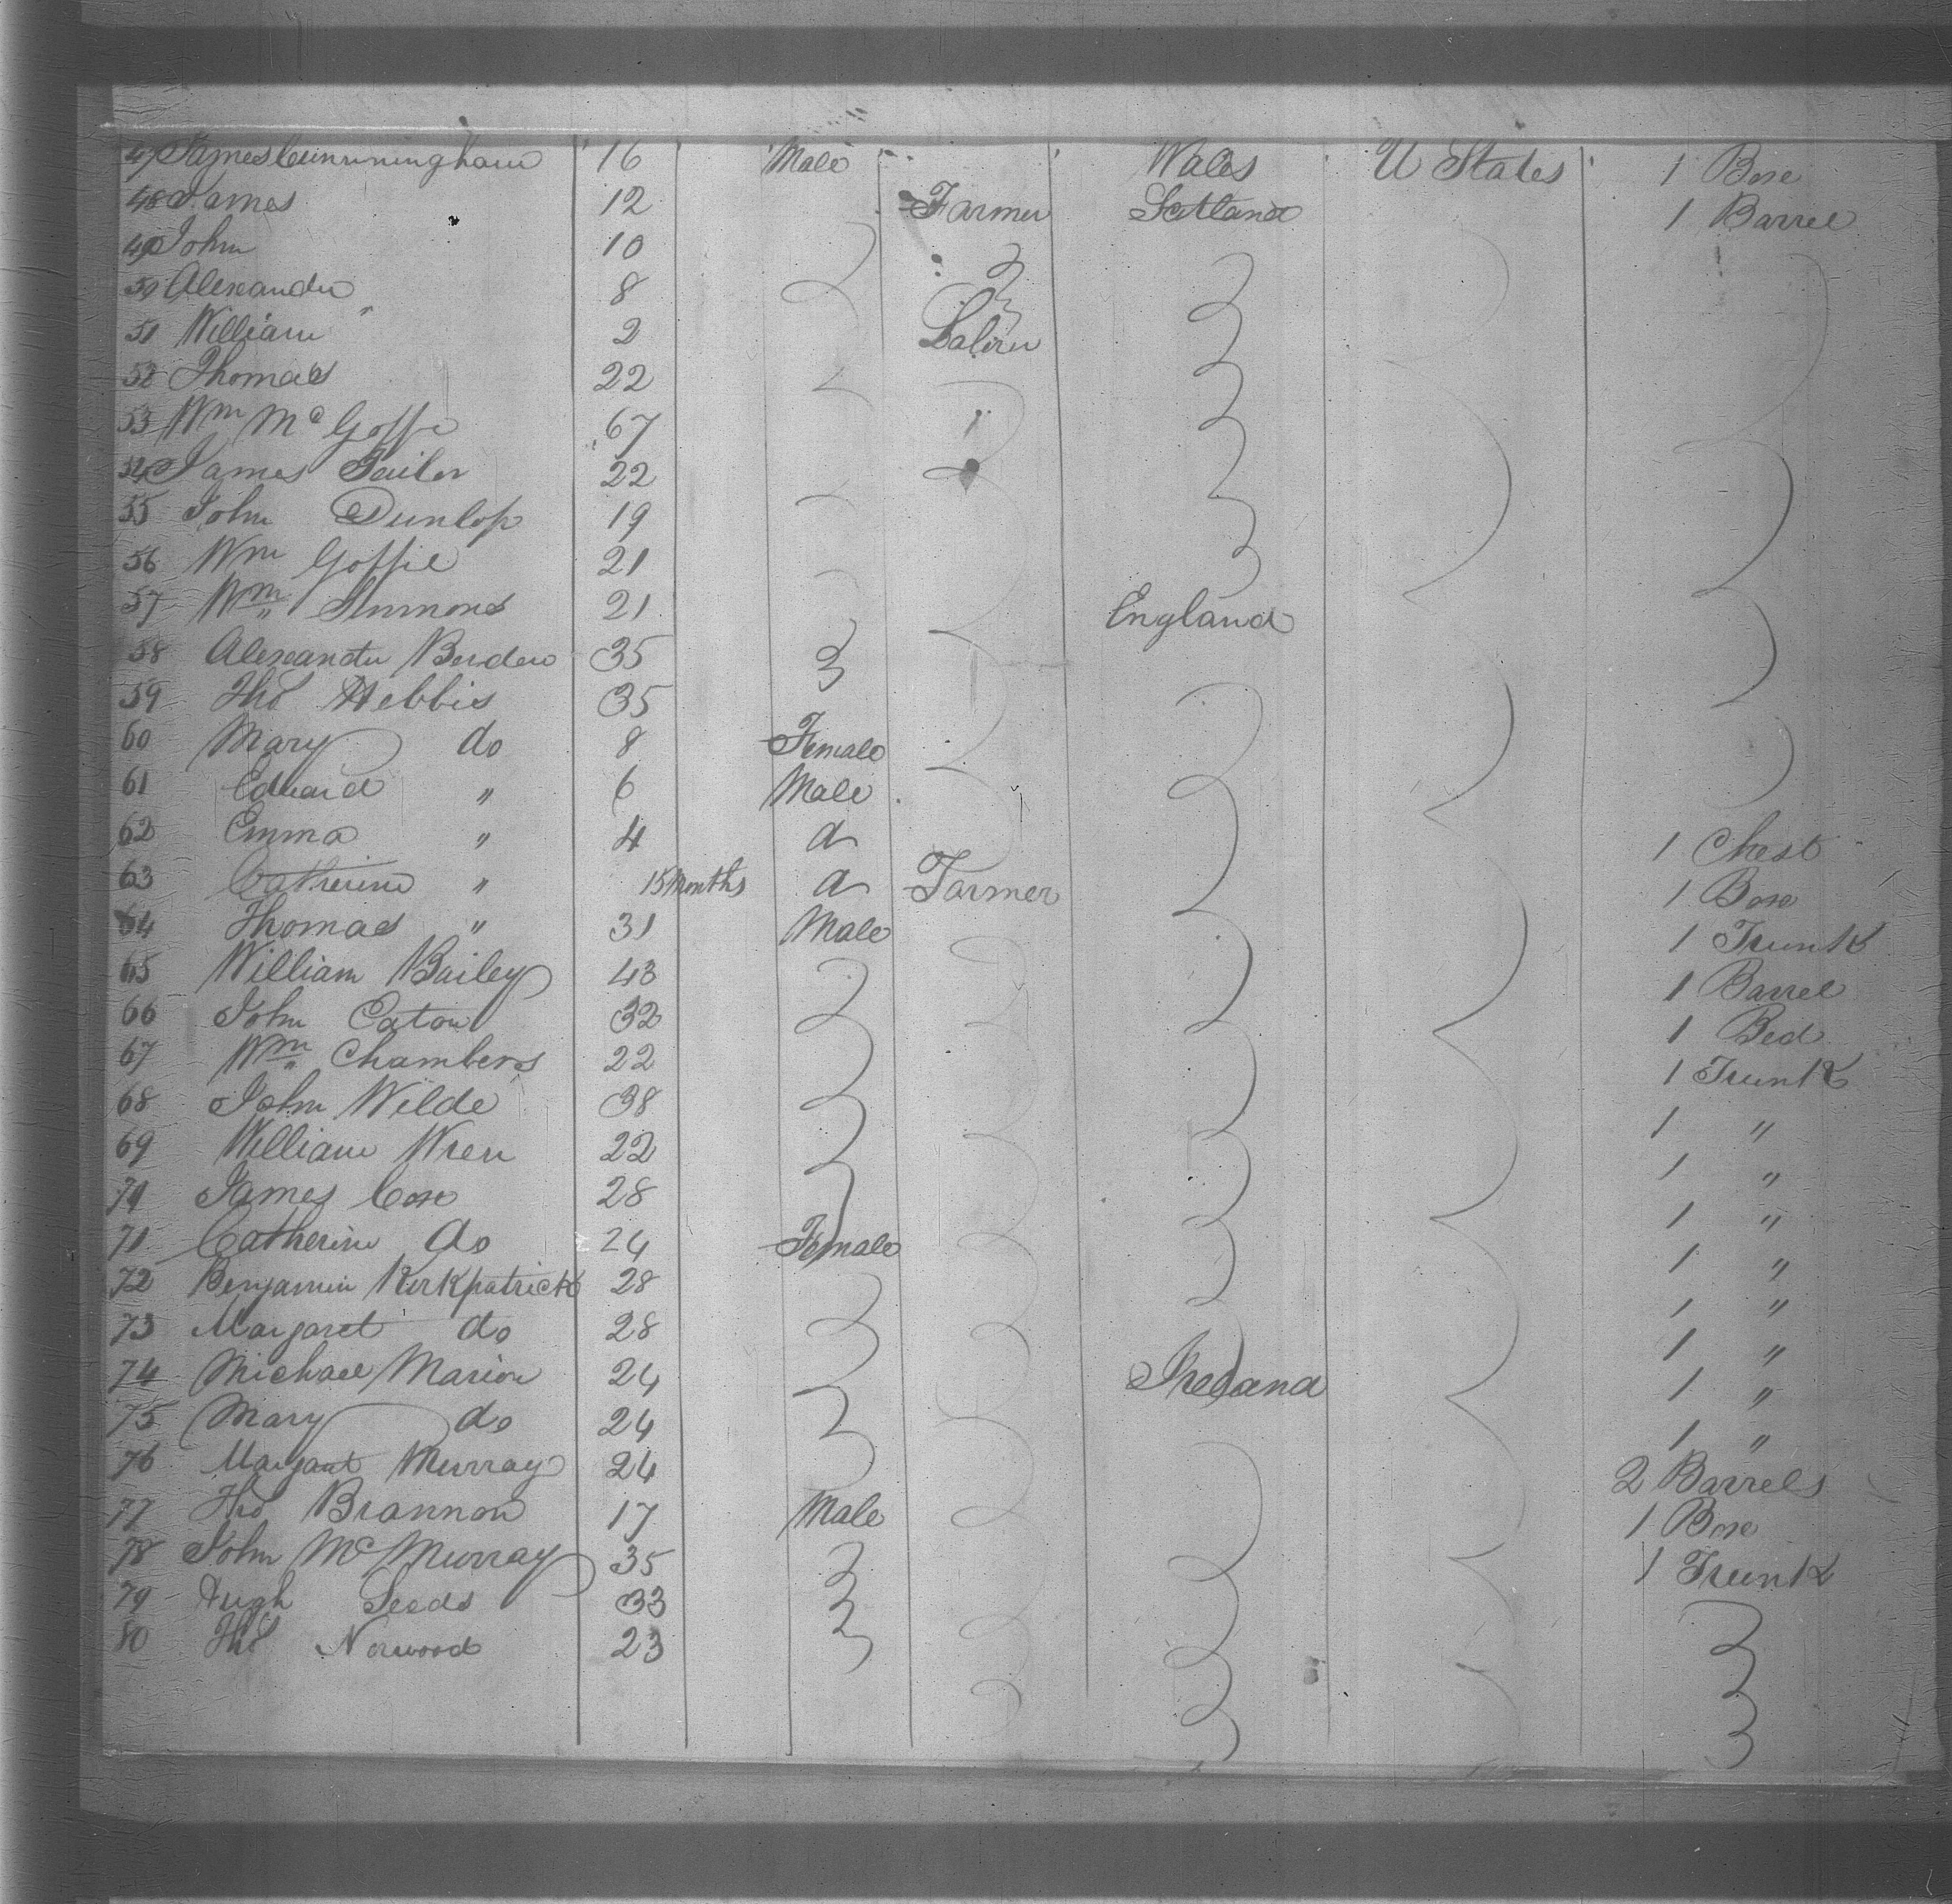 47 James Cunnningham 16 Male Wales U States 1 Boxe
48 James 12 Farmer Scotland 1 Barrel
49 John 10
50 Alexander 8
51 William " 2 Laborer
52 Thomas 22
53 Wm McGoffe 67
54 James Tailor 22
55 John Dunlop 19
56 Wm Goffie 21
57 Wm Simmons 21 England
58 Alexander Berden 35
59 Thos Hebbis 35
60 Mary do 8 Female
61 Edward " 6 Male
62 Emma " 4 d 1 Chest
63 Catherine " 15 Months d Farmer 1 Boxe
64 Thomas " 31 Male 1 Trunk
65 William Bailey 43 1 Barrel
66 John Eaton 32 1 Bed
67 Wm Chambers 22 1 Trunk
68 John Wilde 38 1 "
69 William Wren 22 1 "
70 James Coxe 28 1 "
71 Catherine do 24 Female 1 "
72 Benjamin Kirkpatrick 28 1 "
73 Margaret do 28 1 "
74 Michael Marion 24 Ireland 1 "
75 Mary do 24 1 "
76 Margaret Murray 24 2 Barrels
77 Thos Brannon 17 Male 1 Boxe
78 John McMurray 35 1 Trunk
79 Hugh Seeds 33
80 Thos Norwood 23